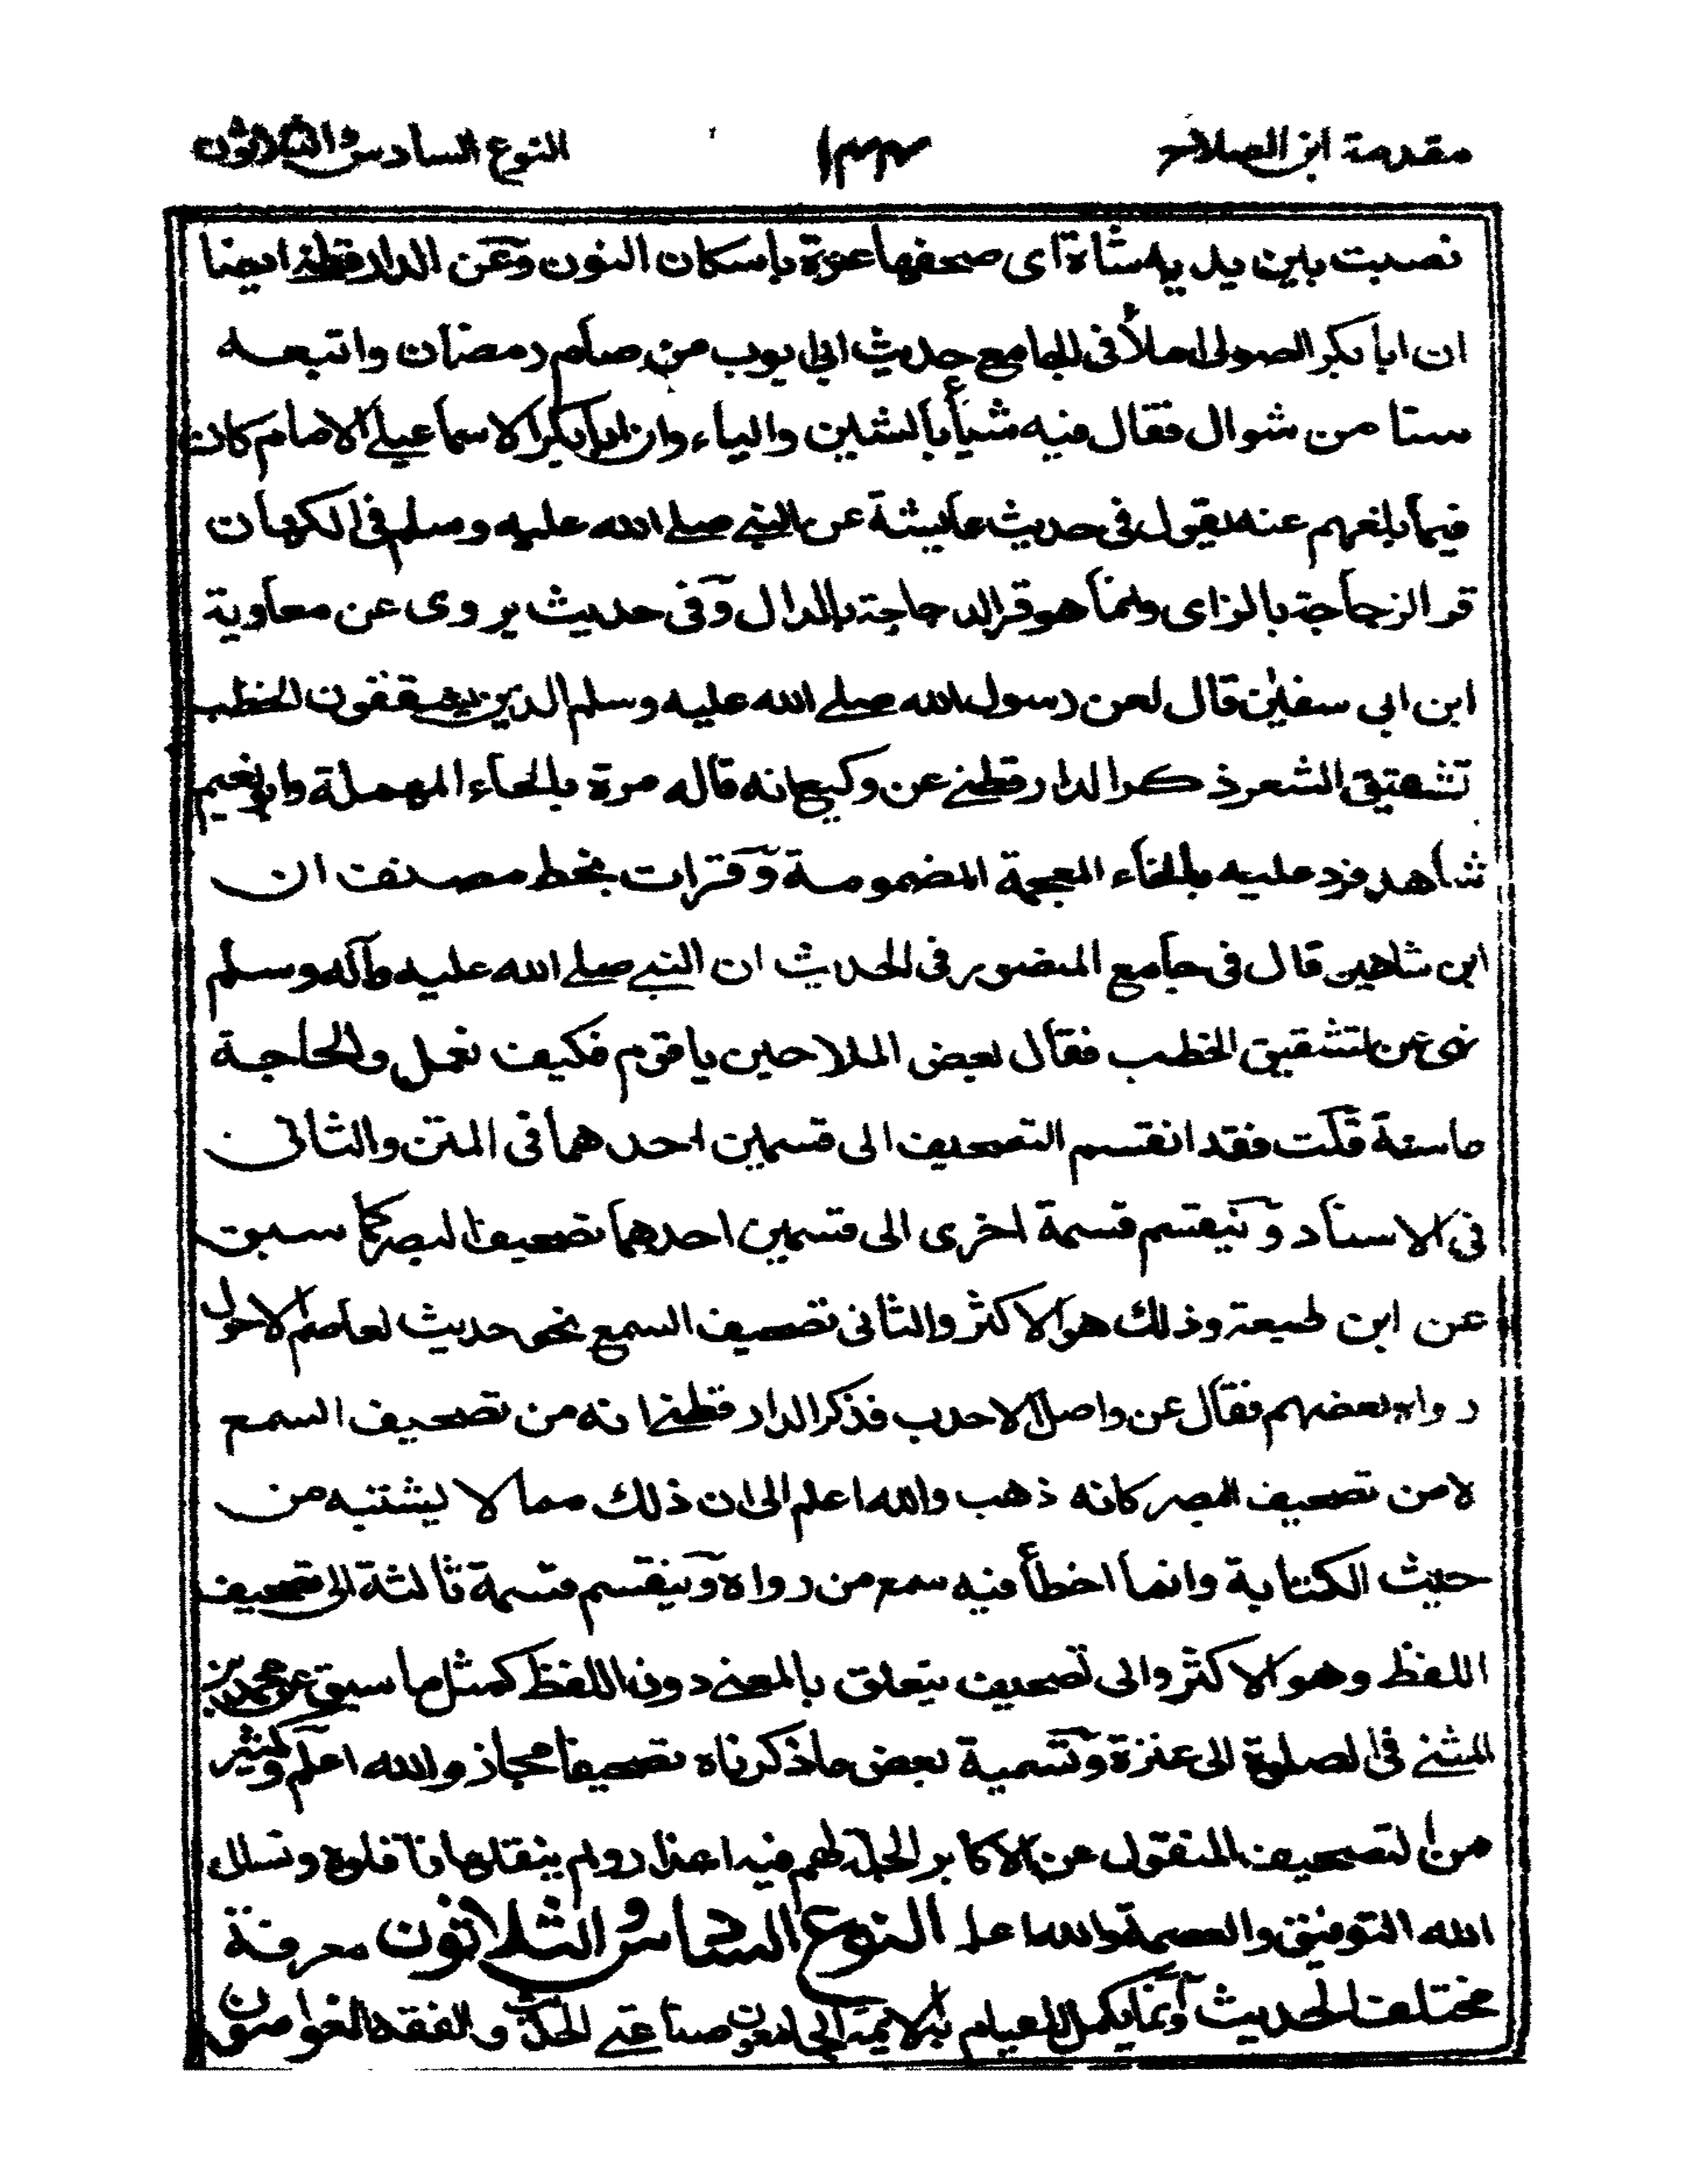 مقدمة ابن الصلاح ١٤٣ النوع السادس والثلاثون
نصبت بين يديه شاة اى صحفها عنزة باسكان النون وعن الدارقطنے ايضا
ان ابا بكر الصولى املأ فى الجامع حديث ابى ايوب من صام رمضان واتبعه
ستا من شوال فقال فيه شيأ بالشين والياء وان ابا بكر الاسماعيلے الامام كان
فيما بلغهم عنه يقول فى حديث عايشة عن النبے صلے الله عليه وسلم فى الكهان
قر الزجاجة بالزاى وانما هو قر الدجاجة بالدال وفى حديث يروى عن معاوية
ابن ابي سفين قال لعن رسول الله صلے الله عليه وسلم الذين يشققون الخطب
تشقيق الشعر ذكر الدارقطنے عن وكيع انه قاله مرة بالحاء المهملة وابو نعيم
شاهد فرد عليه بالخاء المعجمة المضمومة وقرات بخط مصنف ان
ابن شاهين قال فى جامع المنصور فى الحديث ان النبے صلے الله عليه وآله وسلم
نهى عن تشقيق الخطب فقال بعض الملاحين يا قوم فكيف نعمل والحاجة
ماسة قلت فقد انقسم التصحيف الى قسمين احدهما فى المتن والثانى
فى الاسناد وينقسم قسمة اخرى الى قسمين احدهما تصحيف البصر كما سبق
عن ابن لهيعة وذلك هو الاكثر والثانى تصحيف السمع نحو حديث لعاصم الاحول
رواه بعضهم فقال عن واصل الاحدب فذكر الدارقطنے انه من تصحيف السمع
لا من تصحيف البصر كانه ذهب والله اعلم الى ان ذلك مما لا يشتبه من
حيث الكتابة وانما اخطأ فيه سمع من رواه وينقسم قسمة ثالثة الى تصحيف
اللفظ وهو الاكثر والى تصحيف يتعلق بالمعنے دون اللفظ كمثل ما سبق عن محمد بن
المثنے فى الصلوة الى عنزة وتسمية بعض ما ذكرناه تصحيفا مجاز والله اعلم وكثير
من التصحيف المنقول عن الاكابر الجلة لهم فيه اعذار ولم ينقلها ناقلوه ونسال
الله التوفيق والعصمة والله اعلم النوع السادس والثلاثون معرفة
مختلف الحديث وانما يكمل للقيام به الائمة الجامعون صناعتے الحديث والفقه الغواصون